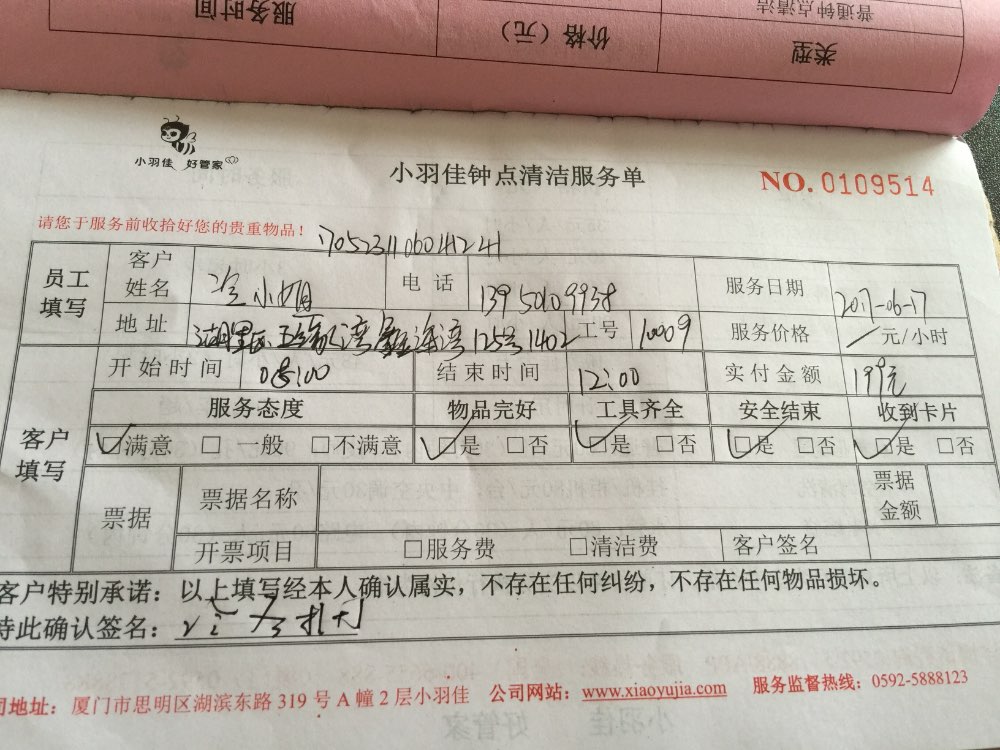 服务时间 价格（元） 普通钟点清洁
类型
小羽佳 好管家
小羽佳钟点清洁服务单 NO. 0109514
请您于服务前收拾好您的贵重物品！
员工填写 客户姓名 小姐 电话 13950109938 服务日期 2017-06-17
地址 125号1402 工号 10009 服务价格 / 元/小时
客户填写 开始时间 08:00 结束时间 12:00 实付金额 199元
服务态度 物品完好 工具齐全 安全结束 收到卡片
☑满意 □一般 □不满意 ☑是 □否 ☑是 □否 ☑是 □否 ☑是 □否
票据 票据名称 票据金额
开票项目 □服务费 □清洁费 客户签名
客户特别承诺：以上填写经本人确认属实，不存在任何纠纷，不存在任何物品损坏。
特此确认签名：
司地址：厦门市思明区湖滨东路 319 号 A 幢 2 层小羽佳 公司网站：www.xiaoyujia.com 服务监督热线：0592-5888123